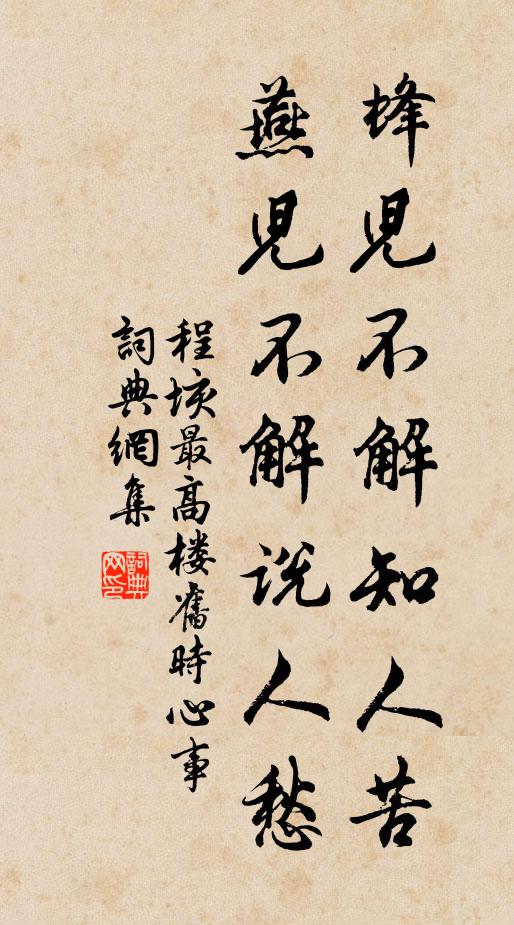 蜂児不解知人苦
燕児不解说人愁
程垓最高楼舊時心事
詞典網集
詞典网印